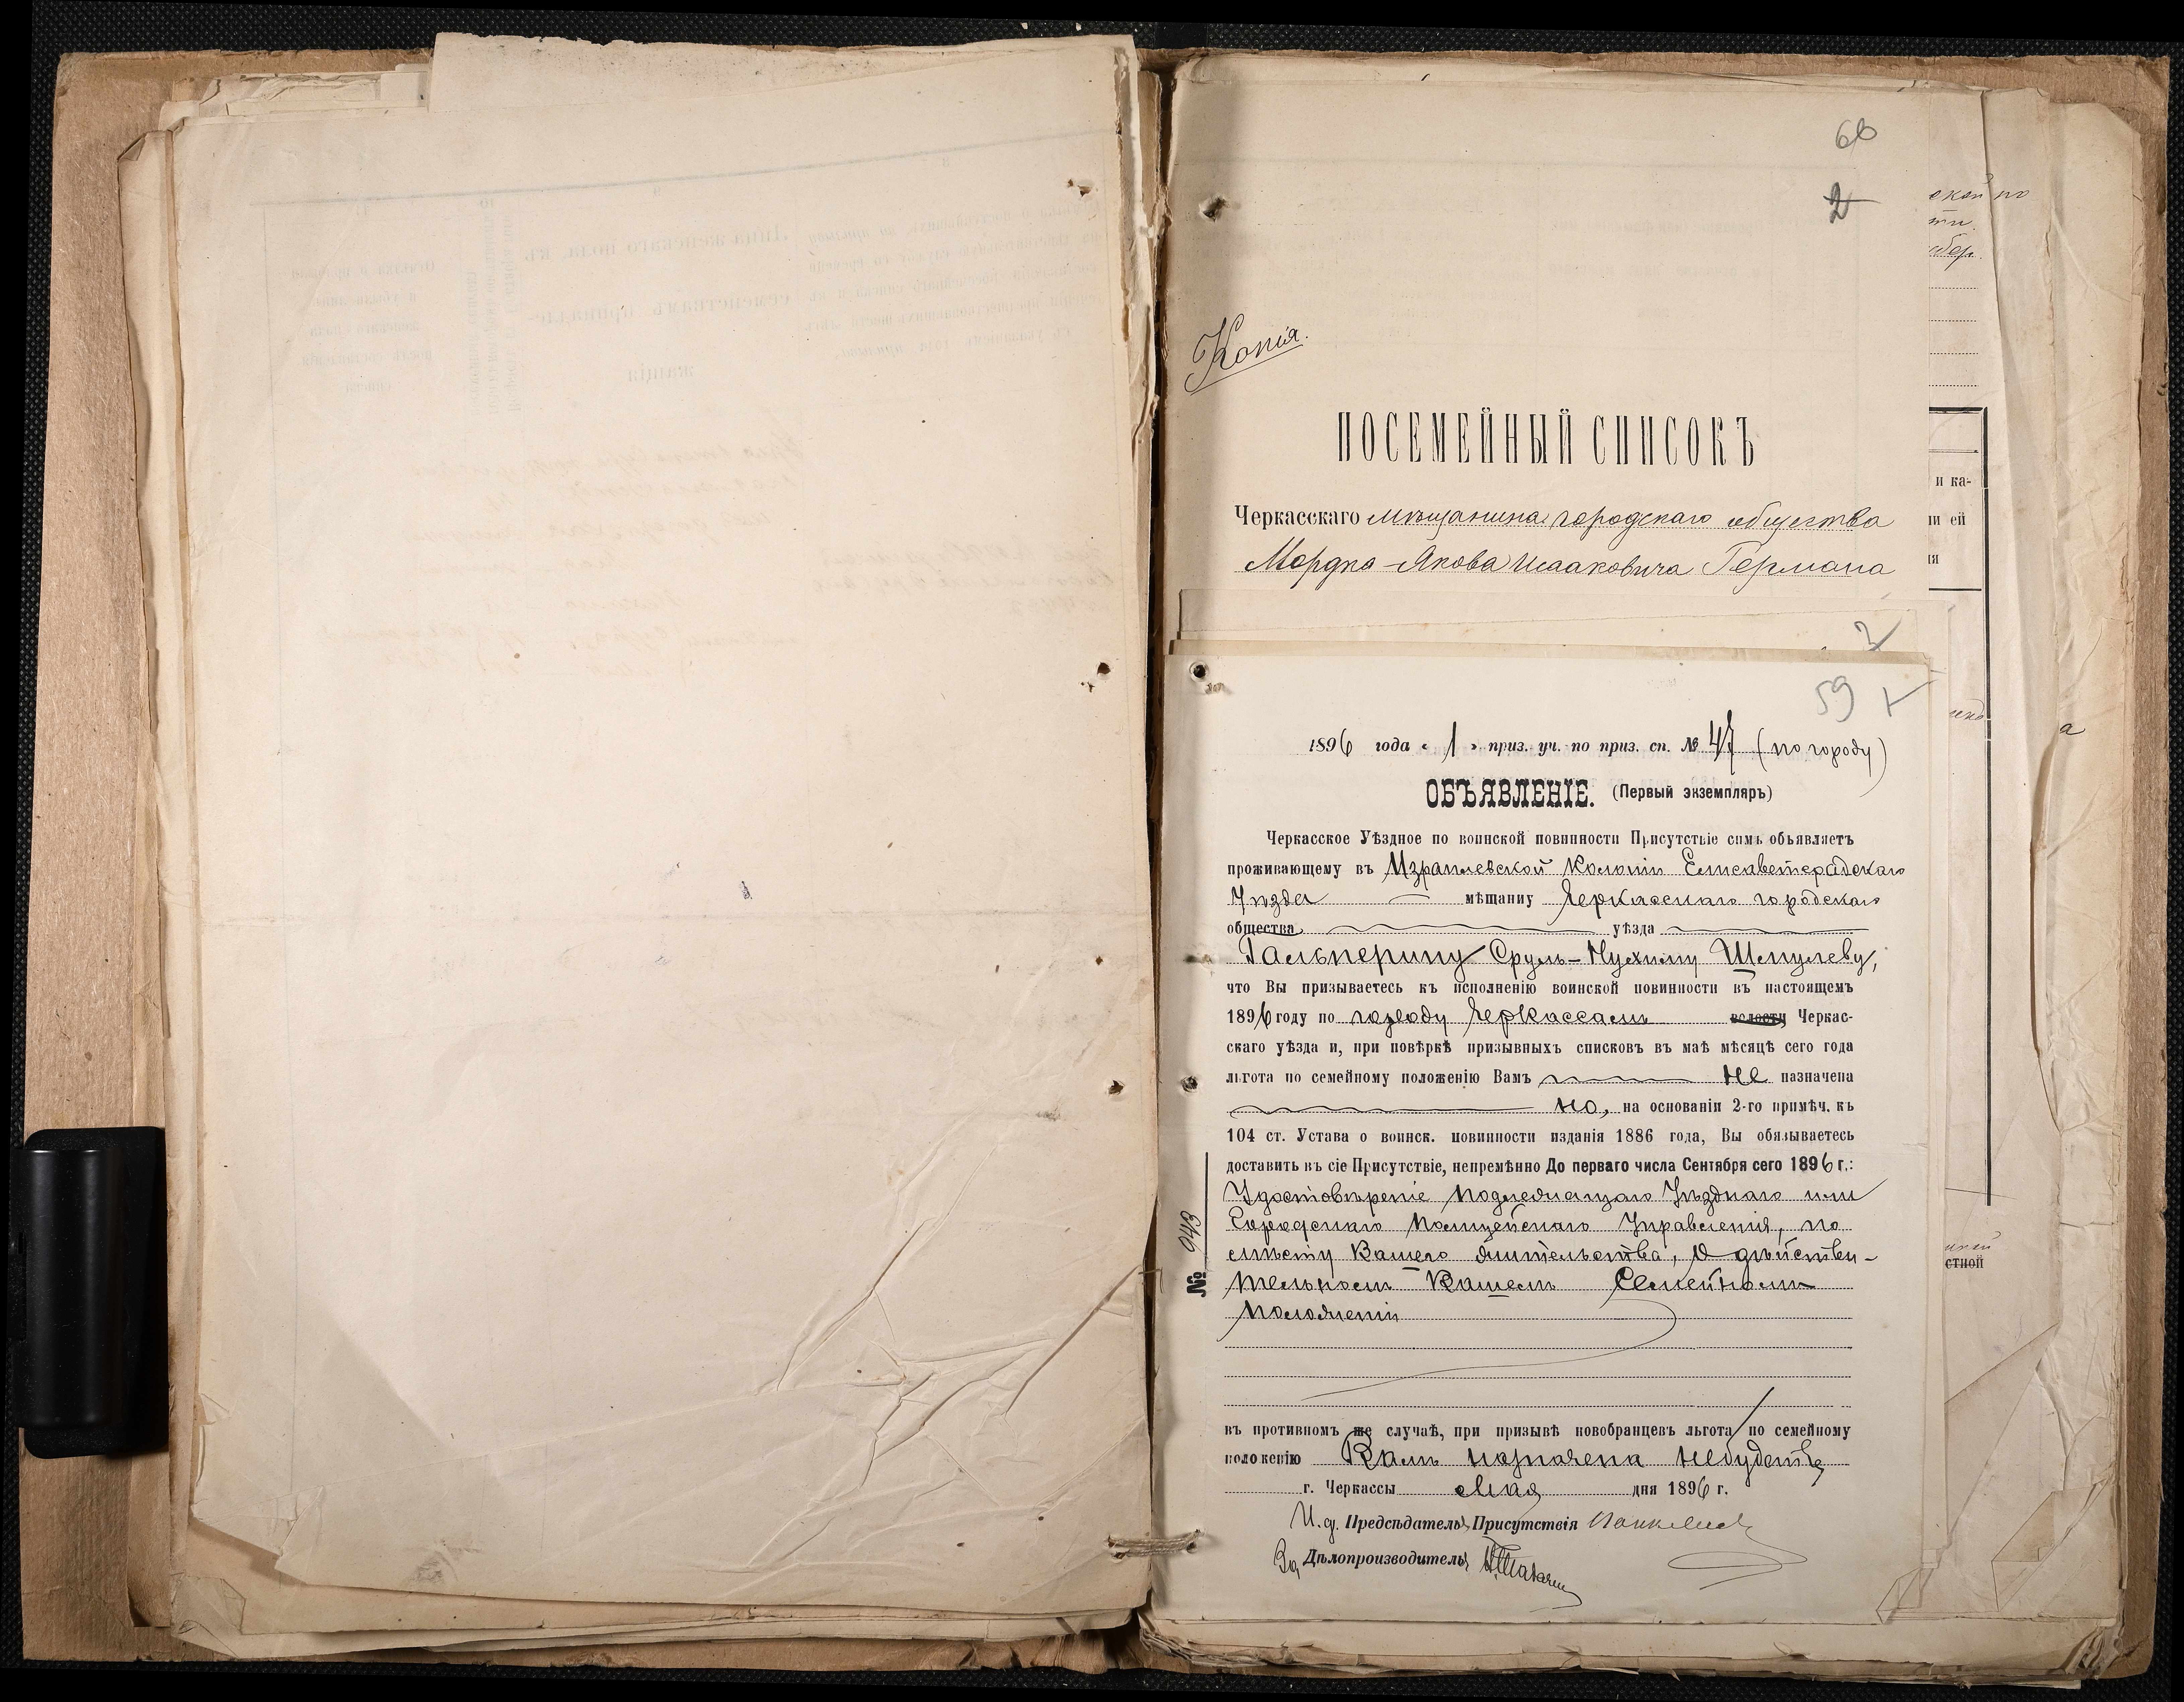 60
2
Копія.
ПОСЕМЕЙНЫЙ СПИСОКЪ
Черкасскаго мѣщанина городскаго общества
Мордка-Якова Исааковича Германа
3
59
1896 года «1» приз. уч. по приз. сп. № 47 (по городу)
ОБЪЯВЛЕНІЕ. (Первый экземпляръ)
Черкасское Уѣздное по воинской повинности Присутствіе симъ объявляетъ
проживающему въ Израилевской Колоніи Елисаветградскаго
Уѣзда мѣщанину Черкасскаго городскаго
общества уѣзда
Гальперину Сруль-Нухиму Шмулеву,
что Вы призываетесь къ исполненію воинской повинности въ настоящемъ
1896 году по городу Черкассамъ волости Черкас-
скаго уѣзда и, при повѣркѣ призывныхъ списковъ въ маѣ мѣсяцѣ сего года
льгота по семейному положенію Вамъ не назначена
но, на основаніи 2-го примѣч. къ
104 ст. Устава о воинск. повинности изданія 1886 года, Вы обязываетесь
доставить въ сіе Присутствіе, непремѣнно До перваго числа Сентября сего 1896 г.:
Удостовѣреніе подлежащаго Уѣзднаго или
Городскаго Полицейскаго Управленія, по
мѣсту Вашего жительства, о дѣйстви-
тельномъ Вашемъ Семейномъ
положеніи
№ 943
въ противномъ же случаѣ, при призывѣ новобранцевъ льгота по семейному
положенію Вамъ назначена небудетъ
г. Черкассы Мая дня 1896 г.
И. д. Предсѣдателя Присутствія
За Дѣлопроизводителя
ской по
и ка-
ни ей
ія
стной
а